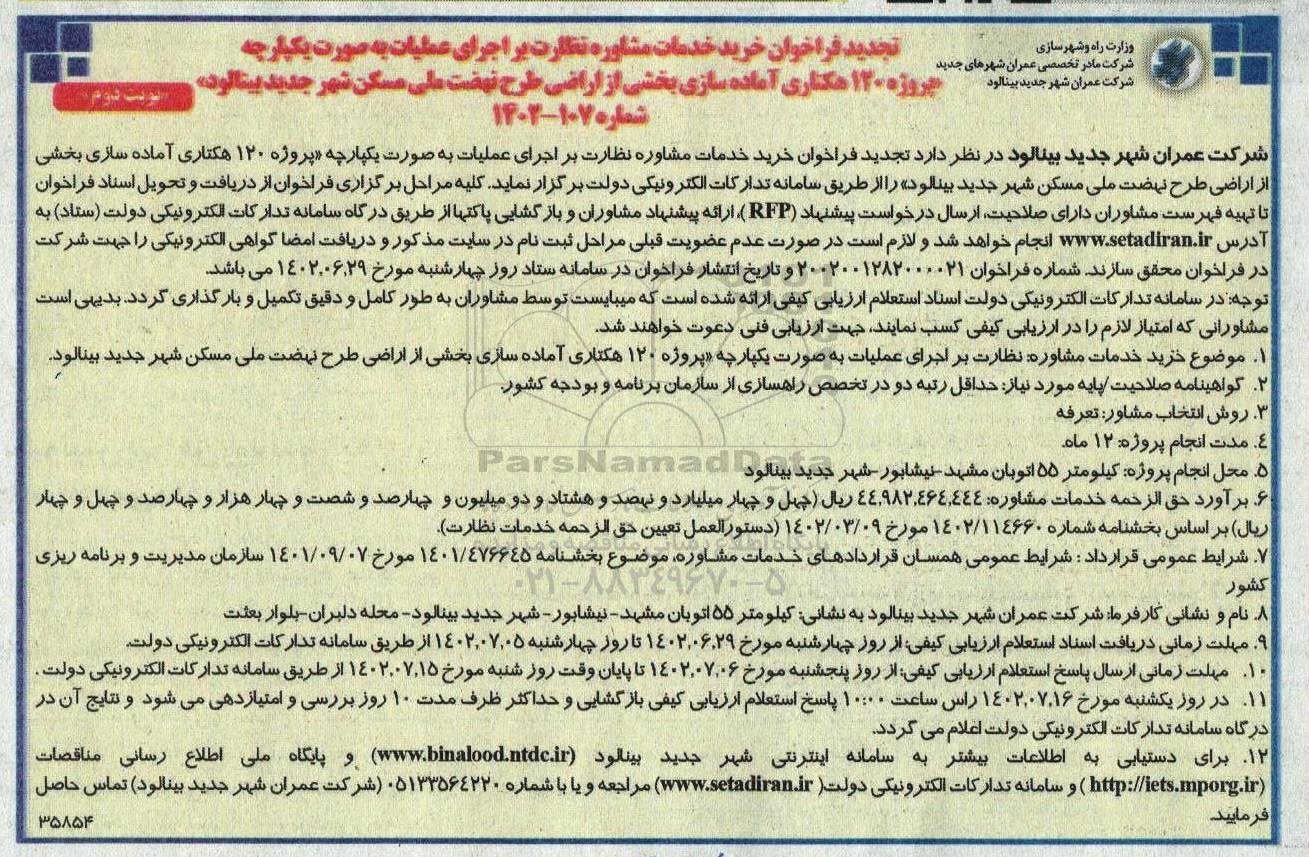 وزارت راه و شهرسازی
شرکت مادر تخصصی عمران شهرهای جدید
شرکت عمران شهر جدید بینالود
تجدید فراخوان خرید خدمات مشاوره نظارت بر اجرای عملیات به صورت یکپارچه
«پروژه ۱۲۰ هکتاری آماده سازی بخشی از اراضی طرح نهضت ملی مسکن شهر جدید بینالود»
شماره ۱۰۷-۱۴۰۲
«نوبت دوم»
شرکت عمران شهر جدید بینالود در نظر دارد تجدید فراخوان خرید خدمات مشاوره نظارت بر اجرای عملیات به صورت یکپارچه «پروژه ۱۲۰ هکتاری آماده سازی بخشی
از اراضی طرح نهضت ملی مسکن شهر جدید بینالود» را از طریق سامانه تدارکات الکترونیکی دولت برگزار نماید. کلیه مراحل برگزاری فراخوان از دریافت و تحویل اسناد فراخوان
تا تهیه فهرست مشاوران دارای صلاحیت، ارسال درخواست پیشنهاد (RFP)، ارائه پیشنهاد مشاوران و بازگشایی پاکتها از طریق درگاه سامانه تدارکات الکترونیکی دولت (ستاد) به
آدرس www.setadiran.ir انجام خواهد شد و لازم است در صورت عدم عضویت قبلی مراحل ثبت نام در سایت مذکور و دریافت امضا گواهی الکترونیکی را جهت شرکت
در فراخوان محقق سازند. شماره فراخوان ۲۰۰۲۰۰۱۲۸۲۰۰۰۰۲۱ و تاریخ انتشار فراخوان در سامانه ستاد روز چهارشنبه مورخ ۱۴۰۲,۰۶,۲۹ می باشد.
توجه: در سامانه تدارکات الکترونیکی دولت اسناد استعلام ارزیابی کیفی ارائه شده است که میبایست توسط مشاوران به طور کامل و دقیق تکمیل و بارگذاری گردد. بدیهی است
مشاورانی که امتیاز لازم را در ارزیابی کیفی کسب نمایند، جهت ارزیابی فنی دعوت خواهند شد.
۱. موضوع خرید خدمات مشاوره: نظارت بر اجرای عملیات به صورت یکپارچه «پروژه ۱۲۰ هکتاری آماده سازی بخشی از اراضی طرح نهضت ملی مسکن شهر جدید بینالود.
۲. گواهینامه صلاحیت/پایه مورد نیاز: حداقل رتبه دو در تخصص راهسازی از سازمان برنامه و بودجه کشور.
۳. روش انتخاب مشاور: تعرفه
۴. مدت انجام پروژه: ۱۲ ماه.
۵. محل انجام پروژه: کیلومتر ۵۵ اتوبان مشهد-نیشابور-شهر جدید بینالود
ParsNamadData
۶. برآورد حق الزحمه خدمات مشاوره: ۴۴,۹۸۲,۴۶۴,۴۴۴ ریال (چهل و چهار میلیارد و نهصد و هشتاد و دو میلیون و چهارصد و شصت و چهار هزار و چهارصد و چهل و چهار
ریال) بر اساس بخشنامه شماره ۱۴۰۲/۱۱۴۶۶۰ مورخ ۱۴۰۲/۰۳/۰۹ (دستورالعمل تعیین حق الزحمه خدمات نظارت).
۷. شرایط عمومی قرارداد : شرایط عمومی همسان قراردادهای خدمات مشاوره، موضوع بخشنامه ۱۴۰۱/۴۷۶۶۴۵ مورخ ۱۴۰۱/۰۹/۰۷ سازمان مدیریت و برنامه ریزی
کشور
۰۲۱-۸۸۳۴۹۶۷۰-۵
۸. نام و نشانی کارفرما: شرکت عمران شهر جدید بینالود به نشانی: کیلومتر ۵۵ اتوبان مشهد-نیشابور- شهر جدید بینالود- محله دلبران-بلوار بعثت
۹. مهلت زمانی دریافت اسناد استعلام ارزیابی کیفی: از روز چهارشنبه مورخ ۱۴۰۲,۰۶,۲۹ تا روز چهارشنبه ۱۴۰۲,۰۷,۰۵ از طریق سامانه تدارکات الکترونیکی دولت.
۱۰. مهلت زمانی ارسال پاسخ استعلام ارزیابی کیفی: از روز پنجشنبه مورخ ۱۴۰۲,۰۷,۰۶ تا پایان وقت روز شنبه مورخ ۱۴۰۲,۰۷,۱۵ از طریق سامانه تدارکات الکترونیکی دولت .
۱۱. در روز یکشنبه مورخ ۱۴۰۲,۰۷,۱۶ راس ساعت ۱۰:۰۰ پاسخ استعلام ارزیابی کیفی بازگشایی و حداکثر ظرف مدت ۱۰ روز بررسی و امتیازدهی می شود و نتایج آن در
درگاه سامانه تدارکات الکترونیکی دولت اعلام می گردد.
۱۲. برای دستیابی به اطلاعات بیشتر به سامانه اینترنتی شهر جدید بینالود (www.binalood.ntdc.ir) و پایگاه ملی اطلاع رسانی مناقصات
(http://iets.mporg.ir ) و سامانه تدارکات الکترونیکی دولت( www.setadiran.ir) مراجعه و یا با شماره ۰۵۱۳۳۵۶۴۲۲۰ (شرکت عمران شهر جدید بینالود) تماس حاصل
فرمایید.
۳۵۸۵۴